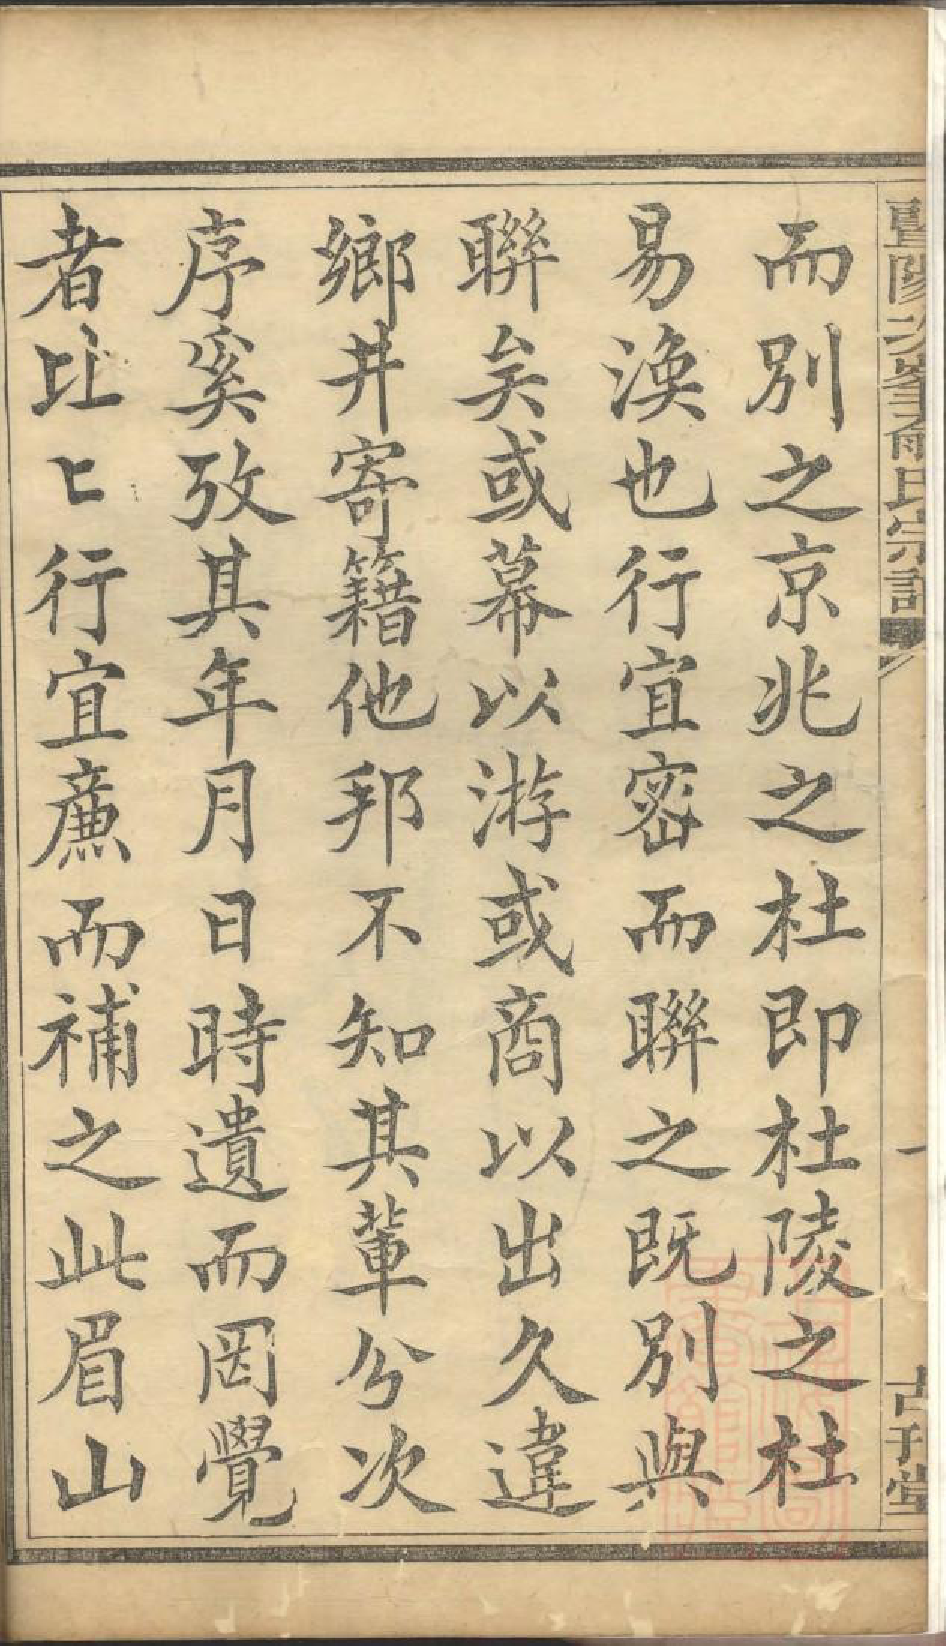 暨陽次峯俞氏宗譜
古刊堂
而別之京兆之杜即杜陵之杜
易渙也行宜密而聯之既別與
聯矣或幕以游或商以出久違
鄉井寄籍他邦不知其輩分次
序奚攷其年月日時遺而罔覺
者比〻行宜廉而補之此眉山